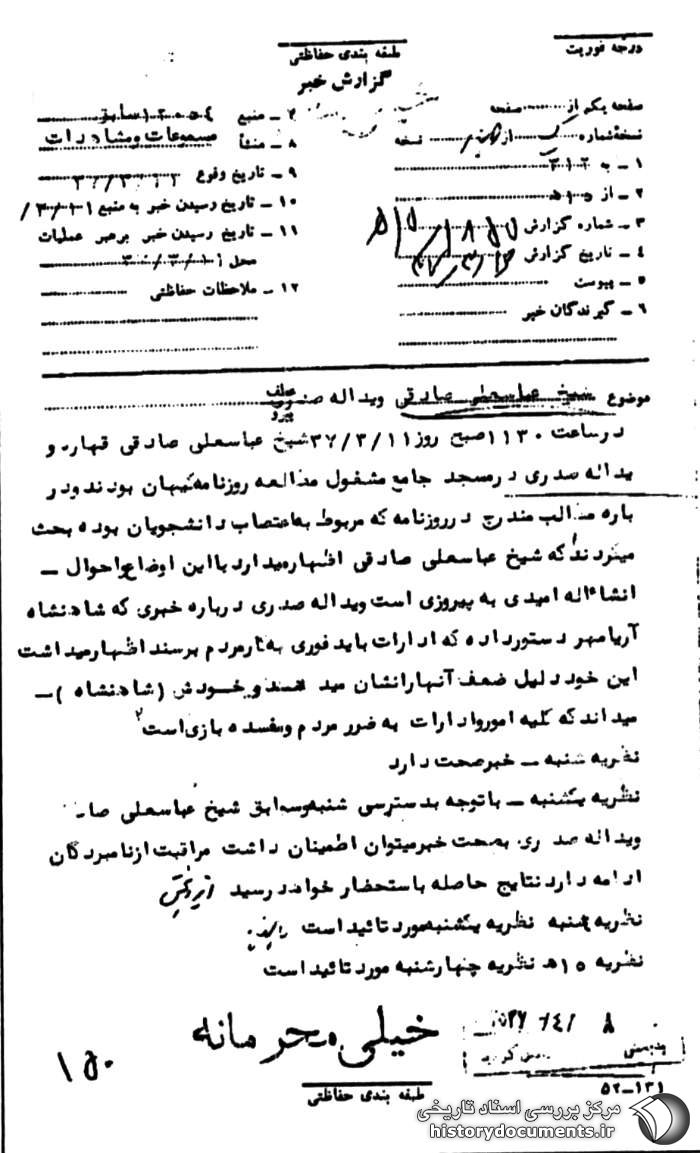 درجه فوریت
طبقه بندی حفاظتی
گزارش خبر
صفحه یکم از صفحه
نسخهٔ شماره از نسخه
۱ ـ به ۳۱۲
۲ ـ از ۵۱۰
۳ ـ شماره گزارش
۴ ـ تاریخ گزارش
۵ ـ پیوست
۶ ـ گیرندگان خبر
۷ ـ منبع ۱۲۰۵۴ سابق
۸ ـ منشأ مسموعات و مشاهدات
۹ ـ تاریخ وقوع
۱۰ ـ تاریخ رسیدن خبر به منبع
۱۱ ـ تاریخ رسیدن خبر برهبر عملیات
محل
۱۲ ـ ملاحظات حفاظتی
موضوع شیخ عباسعلی صادقی ویداله
درساعت ۱۱۳۰ صبح روز ۳۷/۳/۱۱ شیخ عباسعلی صادقی قهارد و
یداله صدری درمسجد جامع مشغول مطالعه روزنامه کیهان بودند ودر
باره مطالب مندرج درروزنامه که مربوط به اعتصاب دانشجویان بوده بحث
میکردند که شیخ عباسعلی صادقی اظهارمیدارد با این اوضاع واحوال ـ
انشاءاله امیدی به پیروزی است ویداله صدری درباره خبری که شاهنشاه
آریامهر دستورداده که ادارات باید فوری به کارمردم برسند اظهارمیداشت
این خود دلیل ضعف آنهارانشان میدهد و خودش (شاهنشاه) ـ
میداندکه کلیه امور وادارات به ضرر مردم ومفسده بازی است
نظریه شنبه ـ خبرصحت دارد
نظریه یکشنبه ـ باتوجه بدسترسی شنبه وسوابق شیخ عباسعلی
ویداله صدری بصحت خبرمیتوان اطمینان داشت مراقبت ازنامبردگان
ادامه دارد نتایج حاصله باستحضار خواهد رسید
نظریه نظریه یکشنبه مورد تائید است
نظریه ۱۵ ه نظریه چهارشنبه مورد تائید است
خیلی محرمانه
۱۵۰
طبقه بندی حفاظتی
۵۲ـ۱۳۱
مرکز بررسی اسناد تاریخی
historydocuments.ir